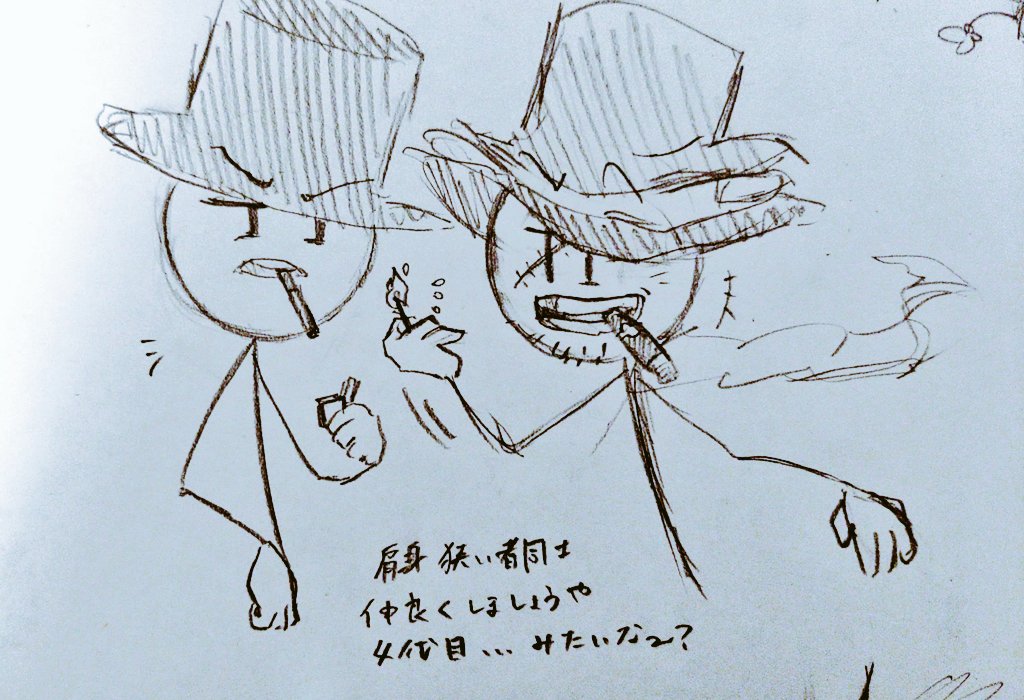 肩身狭い者同士
仲良くしましょうや
4代目...みたいな〜?